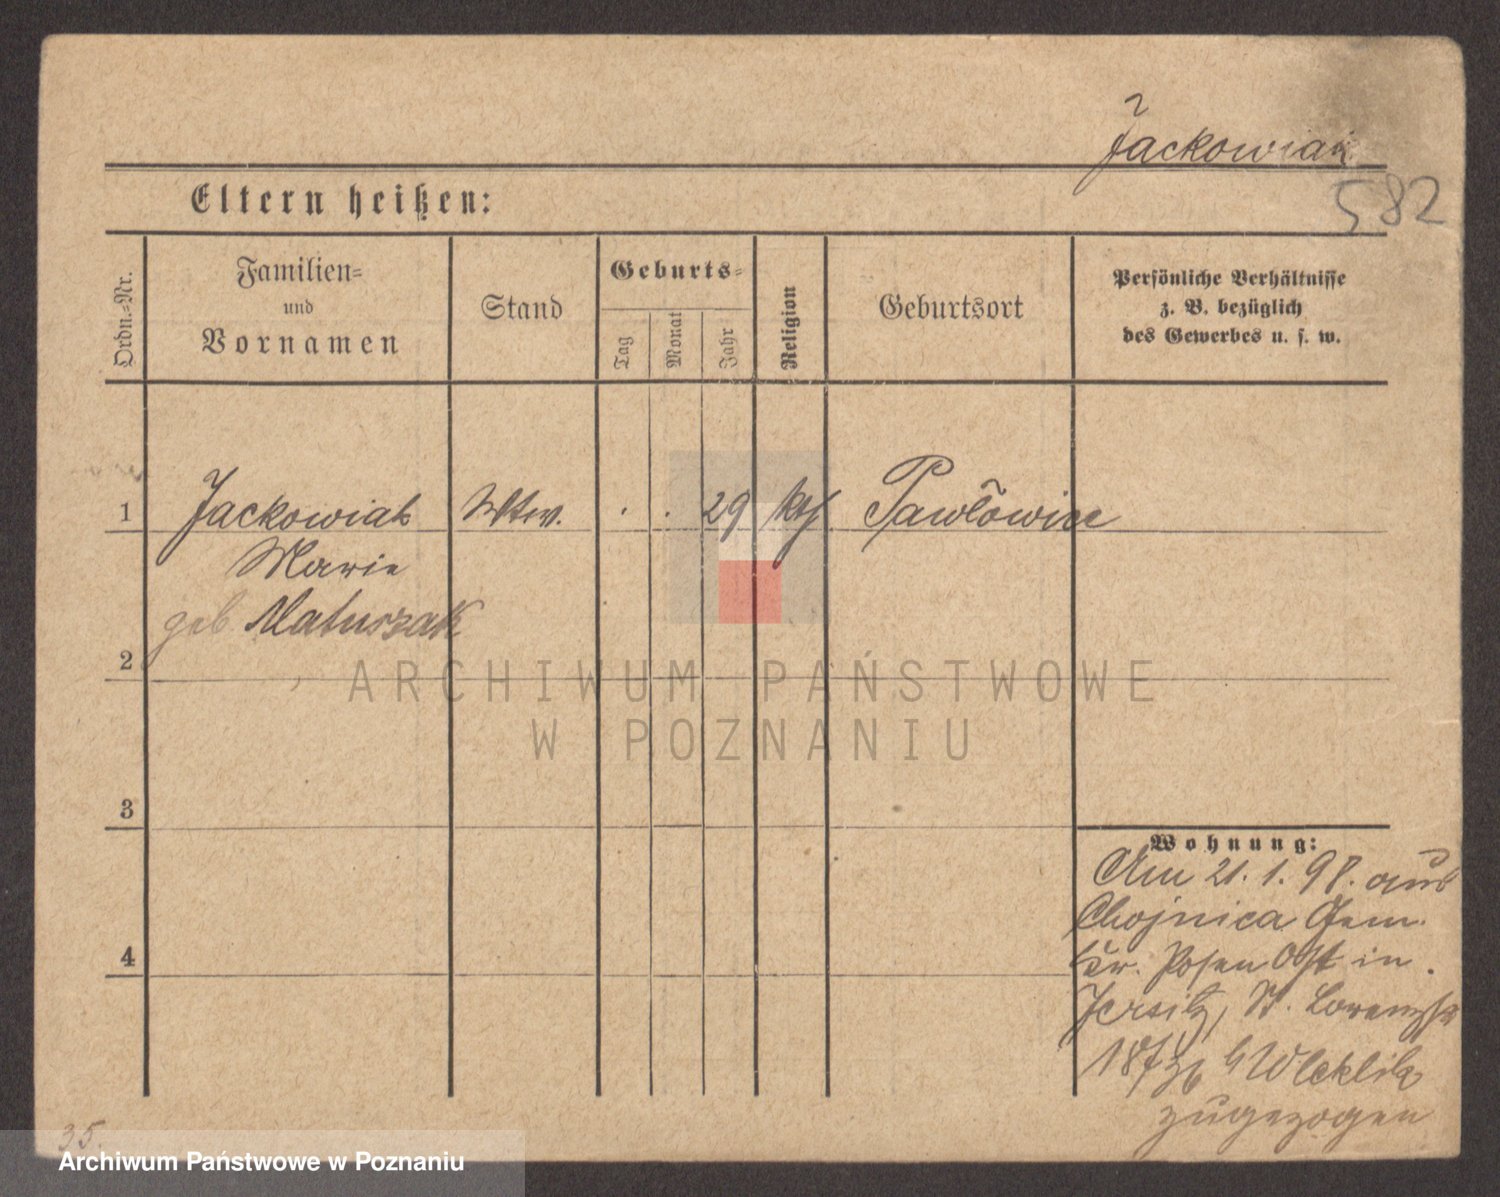 Jackowiak
582
Eltern heißen:
Ordn.-Nr.
Familien-
und
Vornamen
Stand
Geburts-
Tag
Monat
Jahr
Religion
Geburtsort
Persönliche Verhältnisse
z. B. bezüglich
des Gewerbes u. s. w.
1
Jackowiak
Wtw.
29
kth.
Pawłowice
Marie
geb Matuszak
2
ARCHIWUM PAŃSTWOWE
W POZNANIU
3
Wohnung:
Am 21.1.98. aus
Chojnica Gem.
4
Kr. Posen Ost in
Jersitz, St. Lorenzstr
zugezogen
35.
Archiwum Państwowe w Poznaniu